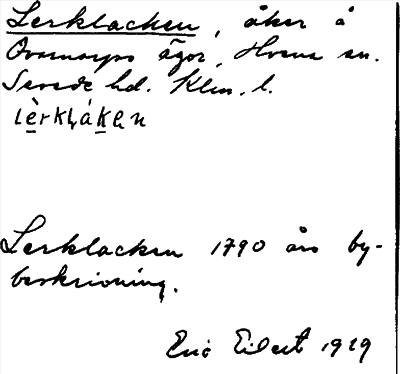 Lerklacken, åker å
ägor, Hvena sn.
Sevede hd. Klm. l.
lèrkḷákẹn
Lerklacken 1790 års by-
beskrivning.
Eric Eilert 1929